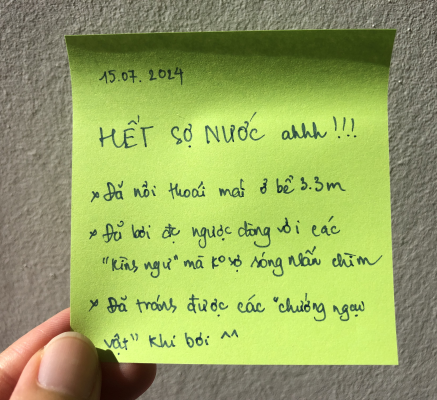 15.07.2024
HẾT SỢ NƯỚC ahhh!!!
* Đã nổi thoải mái ở bể 3.3m
* Đã bơi đc ngược dòng với các
"kình ngư" mà ko sợ sóng nhấn chìm
* Đã tránh được các "chướng ngại
vật" khi bơi ^^